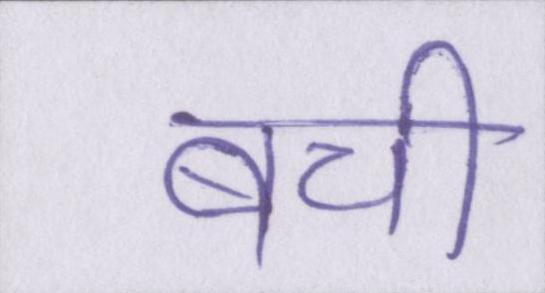 बची